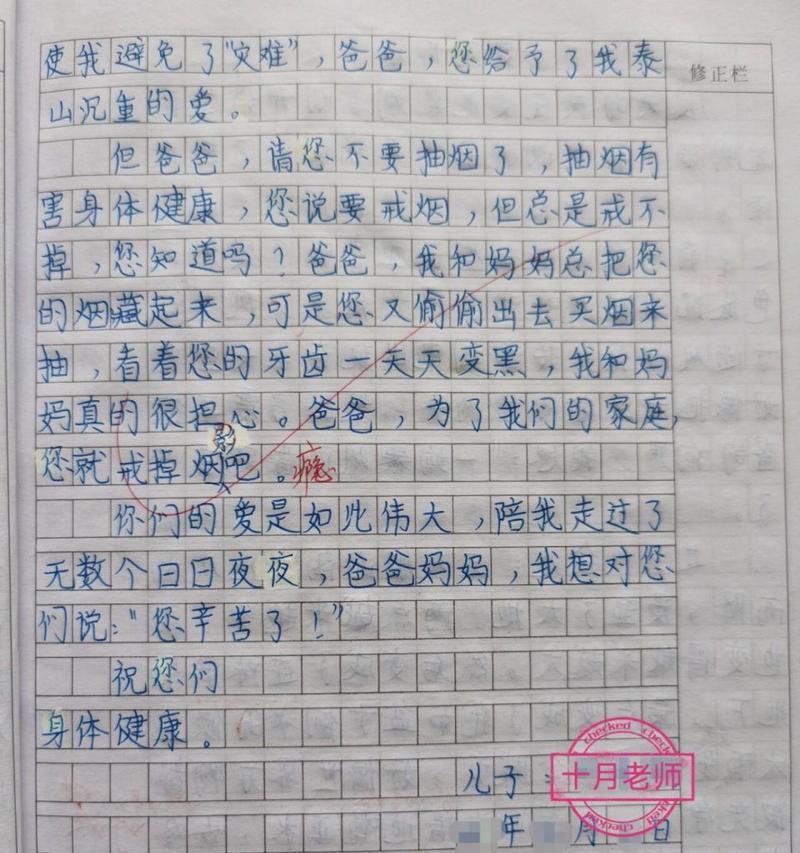 使我避免了“灾难”，爸爸，您给予了我泰
修正栏
山沉重的爱。
但爸爸，请您不要抽烟了，抽烟有
害身体健康，您说要戒烟，但总是戒不
掉，您知道吗？爸爸，我和妈妈总把您
的烟藏起来，可是您又偷偷出去买烟来
抽，看着您的牙齿一天天变黑，我和妈
妈真的很担心。爸爸，为了我们的家庭，
您就戒掉烟吧。瘾
你们的爱是如此伟大，陪我走过了
无数个日日夜夜，爸爸妈妈，我想对您
们说：“您辛苦了！”
祝您们
身体健康。
儿子：
checked
十月老师
checked
年 月 日